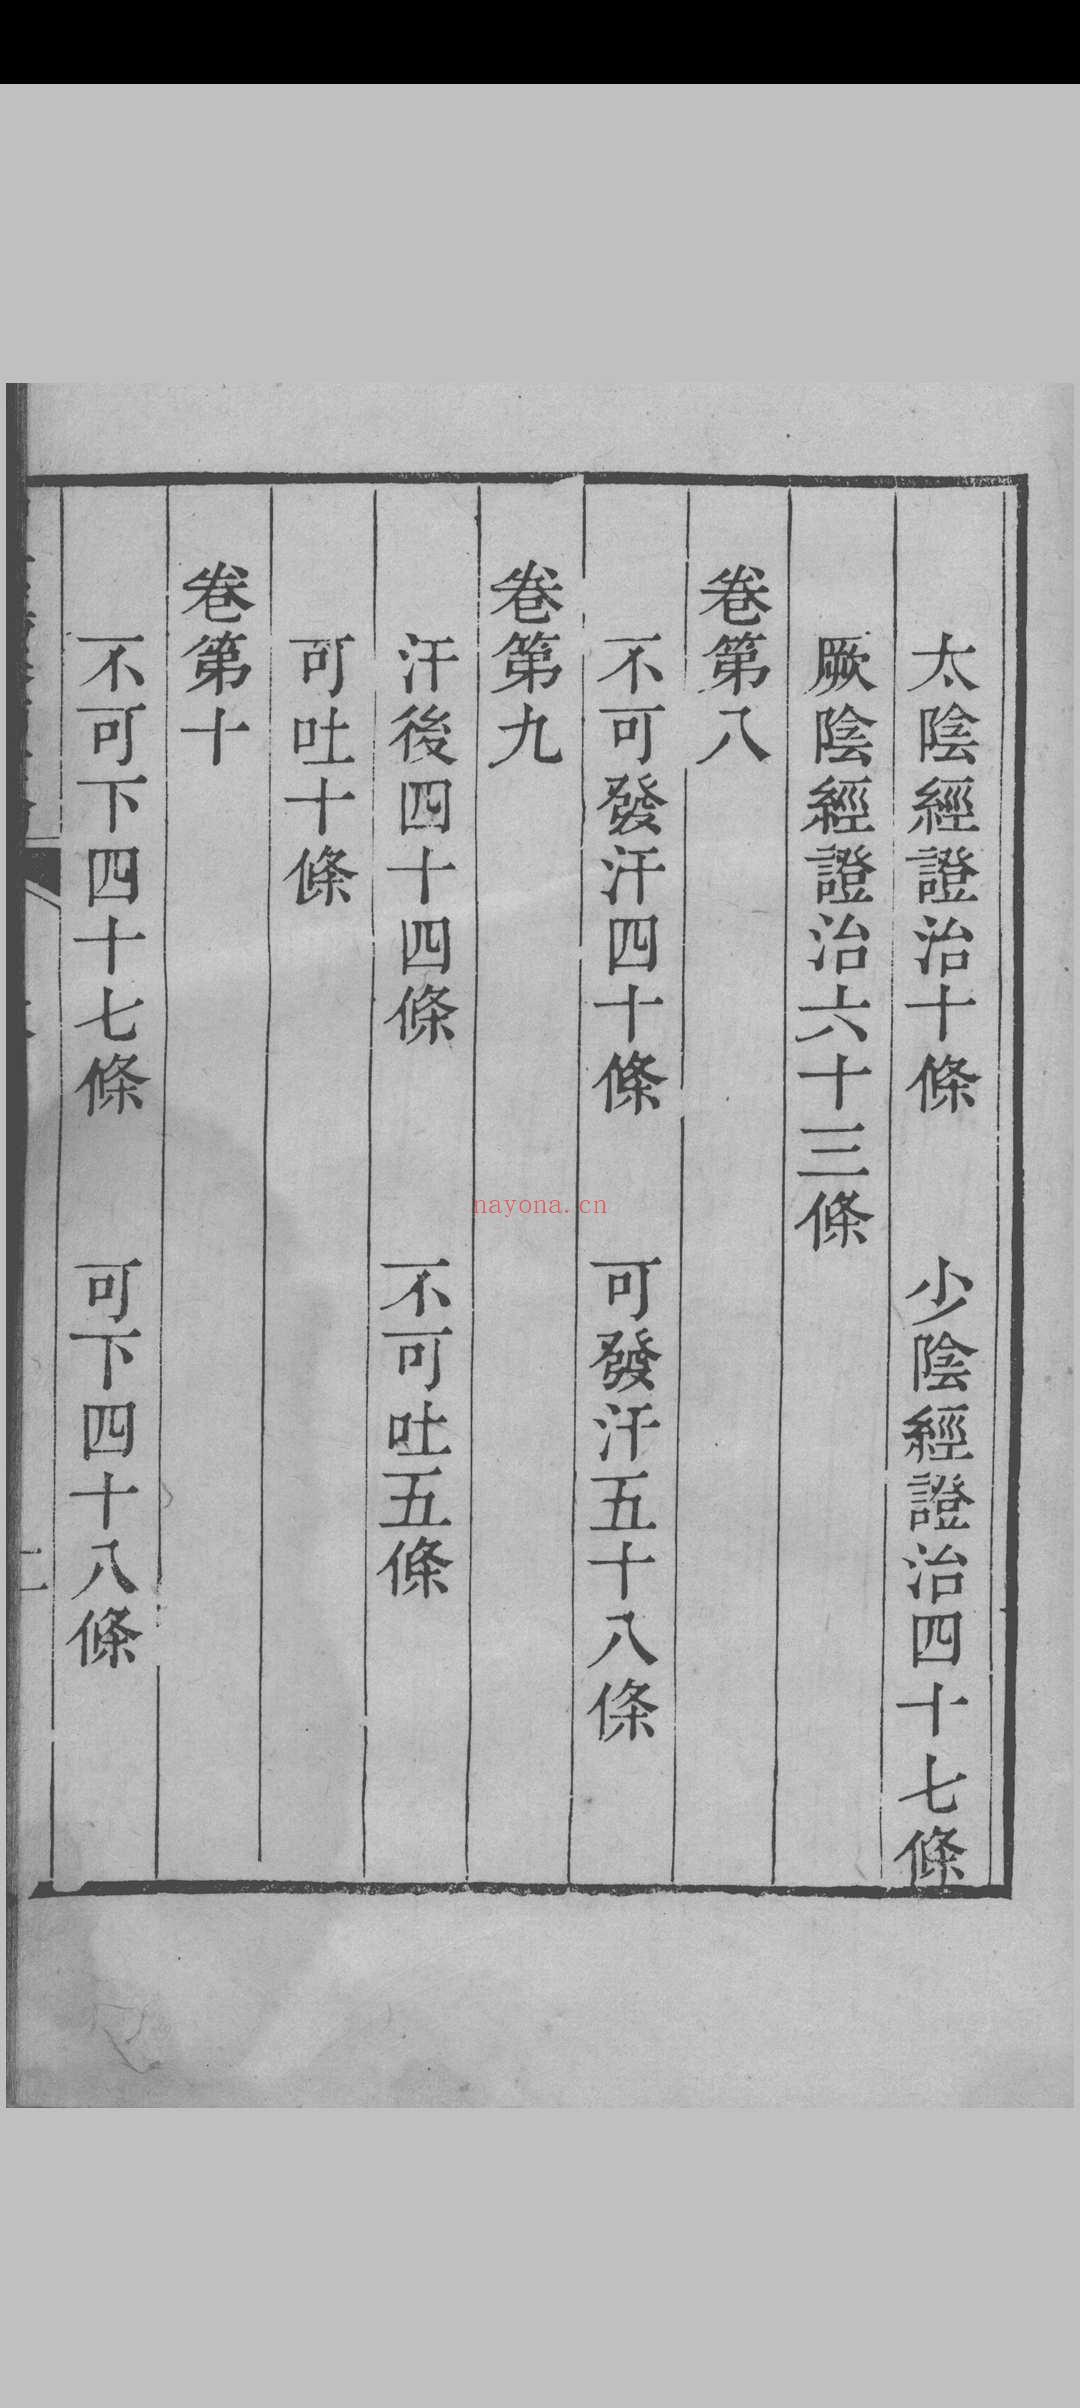 太陰經證治十條 少陰經證治四十七條
厥陰經證治六十三條
卷第八
不可發汗四十條 可發汗五十八條
卷第九
汗後四十四條 不可吐五條
可吐十條
卷第十
不可下四十七條 可下四十八條
二
nayona.cn